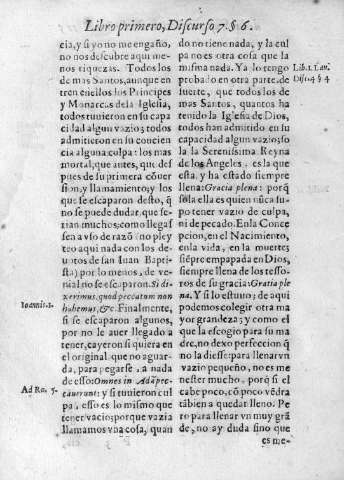 Libro primero, Discurso 7. § 6.
cia, y si yo no me engaño,
no nos descubre aqui me-
nos riquezas. Todos los
de mas Santos, aunque en
tren en ellos los Principes
y Monarcas de la Iglesia,
todos tuuieron en su capa
cidad algun vazio; todos
admitieron en su concien
cia alguna culpa: los mas
mortal, que antes, que des
pues de su primera cōuer
sion, y llamamiento; y los
que se escaparon desto, q̄
no se puede dudar, que se-
rian muchos; como llegas
sen a vso de razō (no pley
teo aqui nada con los de-
uotos de san Iuan Baptis-
ta) por lo menos, de ve-
nial no se escaparon. Si di-
xerimus, quod peccatum non
habemus, &c. Finalmente,
si se escaparon algunos,
por no le auer llegado a
tener, cayeron si quiera en
el original. que no aguar-
da, para pegarse, a nada
de esso: Omnes in Adã pec-
cauerunt: y si tuuieron cul
pa, esso es lo mismo que
tener vacio; porque vazia
llamamos vna cosa, quan
Ioannis. 1.
Ad Ro. 5.
do no tiene nada, y la cul
pa no es otra cosa que la
misma nada. Ya lo tengo
probado en otra parte. de
suerte, que todos los de
mas Santos, quantos ha
tenido la Iglesia de Dios,
todos han admitido en su
capacidad algun vazio; so
la la Serenissima Reyna
de los Angeles, es la que
esta, y ha estado siempre
llena: Gracia plena: porq̄
sola ella es quien nūca su-
po tener vazio de culpa,
ni de pecado. En la Conce
pcion, en el Nacimiento,
en la vida, en la muerte;
siēpre empapada en Dios,
siempre llena de los tesso-
ros de su gracia: Gratia ple
na. Y si lo estuuo; de aqui
podemos colegir otra ma
yor grandeza; y es como
el que la escogio para su ma
dre, no dexo perfeccion q̄
no la diesse: para llenar vn
vazio pequeño, no es me
nester mucho, porq̄ si el
cabe poco, cō poco vēdra
tābien a quedar lleno. Pe
ro para llenar vn muy grā
de, no ay duda sino que
es me-
Lib. 1. f. au.
Dis. 4 § 4